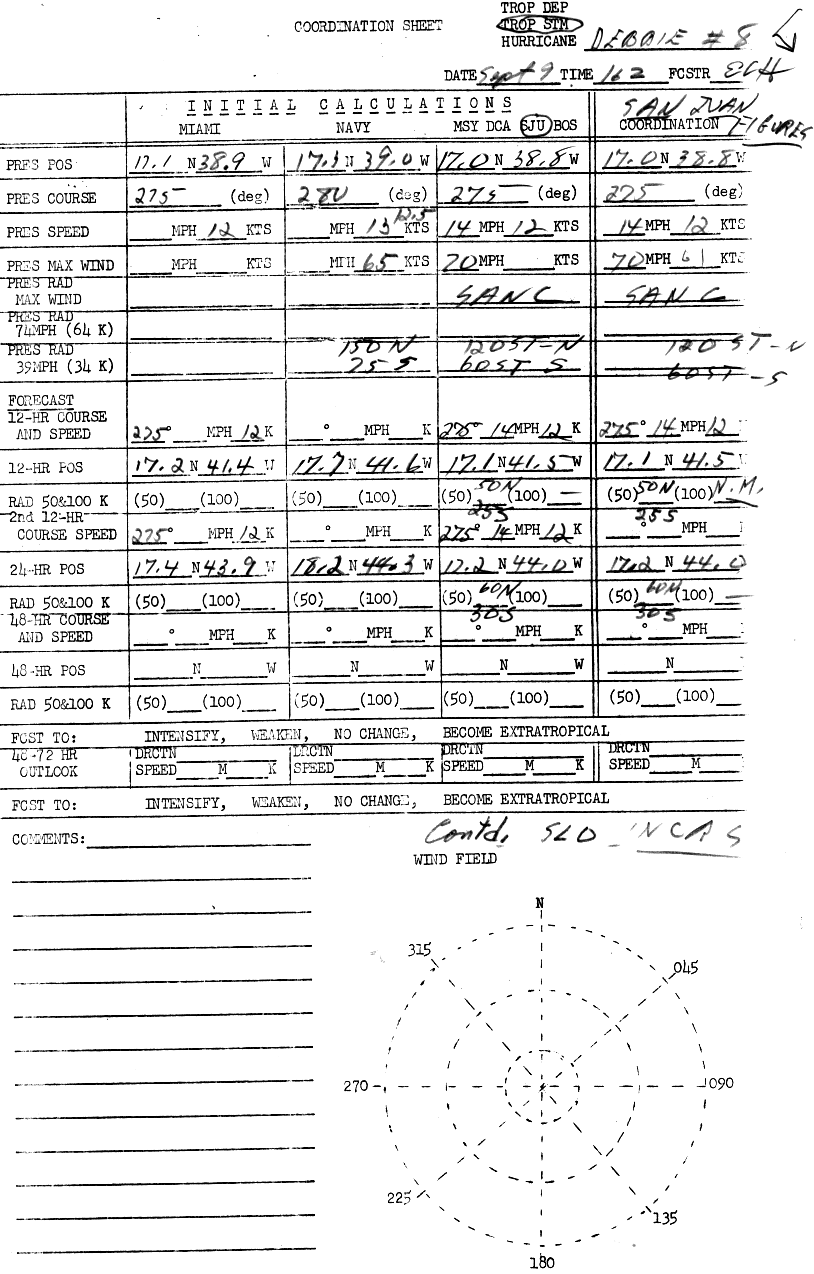 TROP DEP
COORDINATION SHEET TROP STM
HURRICANE DEBBIE # 8
DATE Sept 9 TIME 16Z FCSTR ECH
INITIAL CALCULATIONS SAN JUAN
MIAMI NAVY MSY DCA SJU BOS COORDINATION FIGURES
PRES POS 17.1 N 38.9 W 17.3 N 39.0 W 17.0 N 38.8 W 17.0 N 38.8 W
PRES COURSE 275 (deg) 280 (deg) 275 (deg) 275 (deg)
12.5
PRES SPEED MPH 12 KTS MPH 13 KTS 14 MPH 12 KTS 14 MPH 12 KTS
PRES MAX WIND MPH KTS MPH 65 KTS 70 MPH KTS 70 MPH 61 KTS
PRES RAD
MAX WIND SAN C SAN C
PRES RAD
74MPH (64 K)
PRES RAD 150 N 120 ST-N 120 ST-N
39MPH (34 K) 75 S 60 ST S 60 ST-S
FORECAST
12-HR COURSE
AND SPEED 275° MPH 12 K ° MPH K 275° 14 MPH 12 K 275° 14 MPH 12
12-HR POS 17.2 N 41.4 W 17.7 N 41.6 W 17.1 N 41.5 W 17.1 N 41.5
RAD 50&100 K (50) (100) (50) (100) (50) 50N (100) — (50) 50N (100) N.M.
2nd 12-HR 25S 25S
COURSE SPEED 275° MPH 12 K ° MPH K 275° 14 MPH 12 K ° MPH
24-HR POS 17.4 N 43.9 W 18.2 N 44.3 W 17.2 N 44.0 W 17.2 N 44.0
RAD 50&100 K (50) (100) (50) (100) (50) 60N (100) (50) 60N (100) —
48-HR COURSE 30S 30S
AND SPEED ° MPH K ° MPH K ° MPH K ° MPH
48-HR POS N W N W N W N
RAD 50&100 K (50) (100) (50) (100) (50) (100) (50) (100)
FCST TO: INTENSIFY, WEAKEN, NO CHANGE, BECOME EXTRATROPICAL
48-72 HR DRCTN DRCTN DRCTN DRCTN
OUTLOOK SPEED M K SPEED M K SPEED M K SPEED M
FCST TO: INTENSIFY, WEAKEN, NO CHANGE, BECOME EXTRATROPICAL
COMMENTS: Contd. SLO INCAS
WIND FIELD
N
315 045
270 090
225 135
180